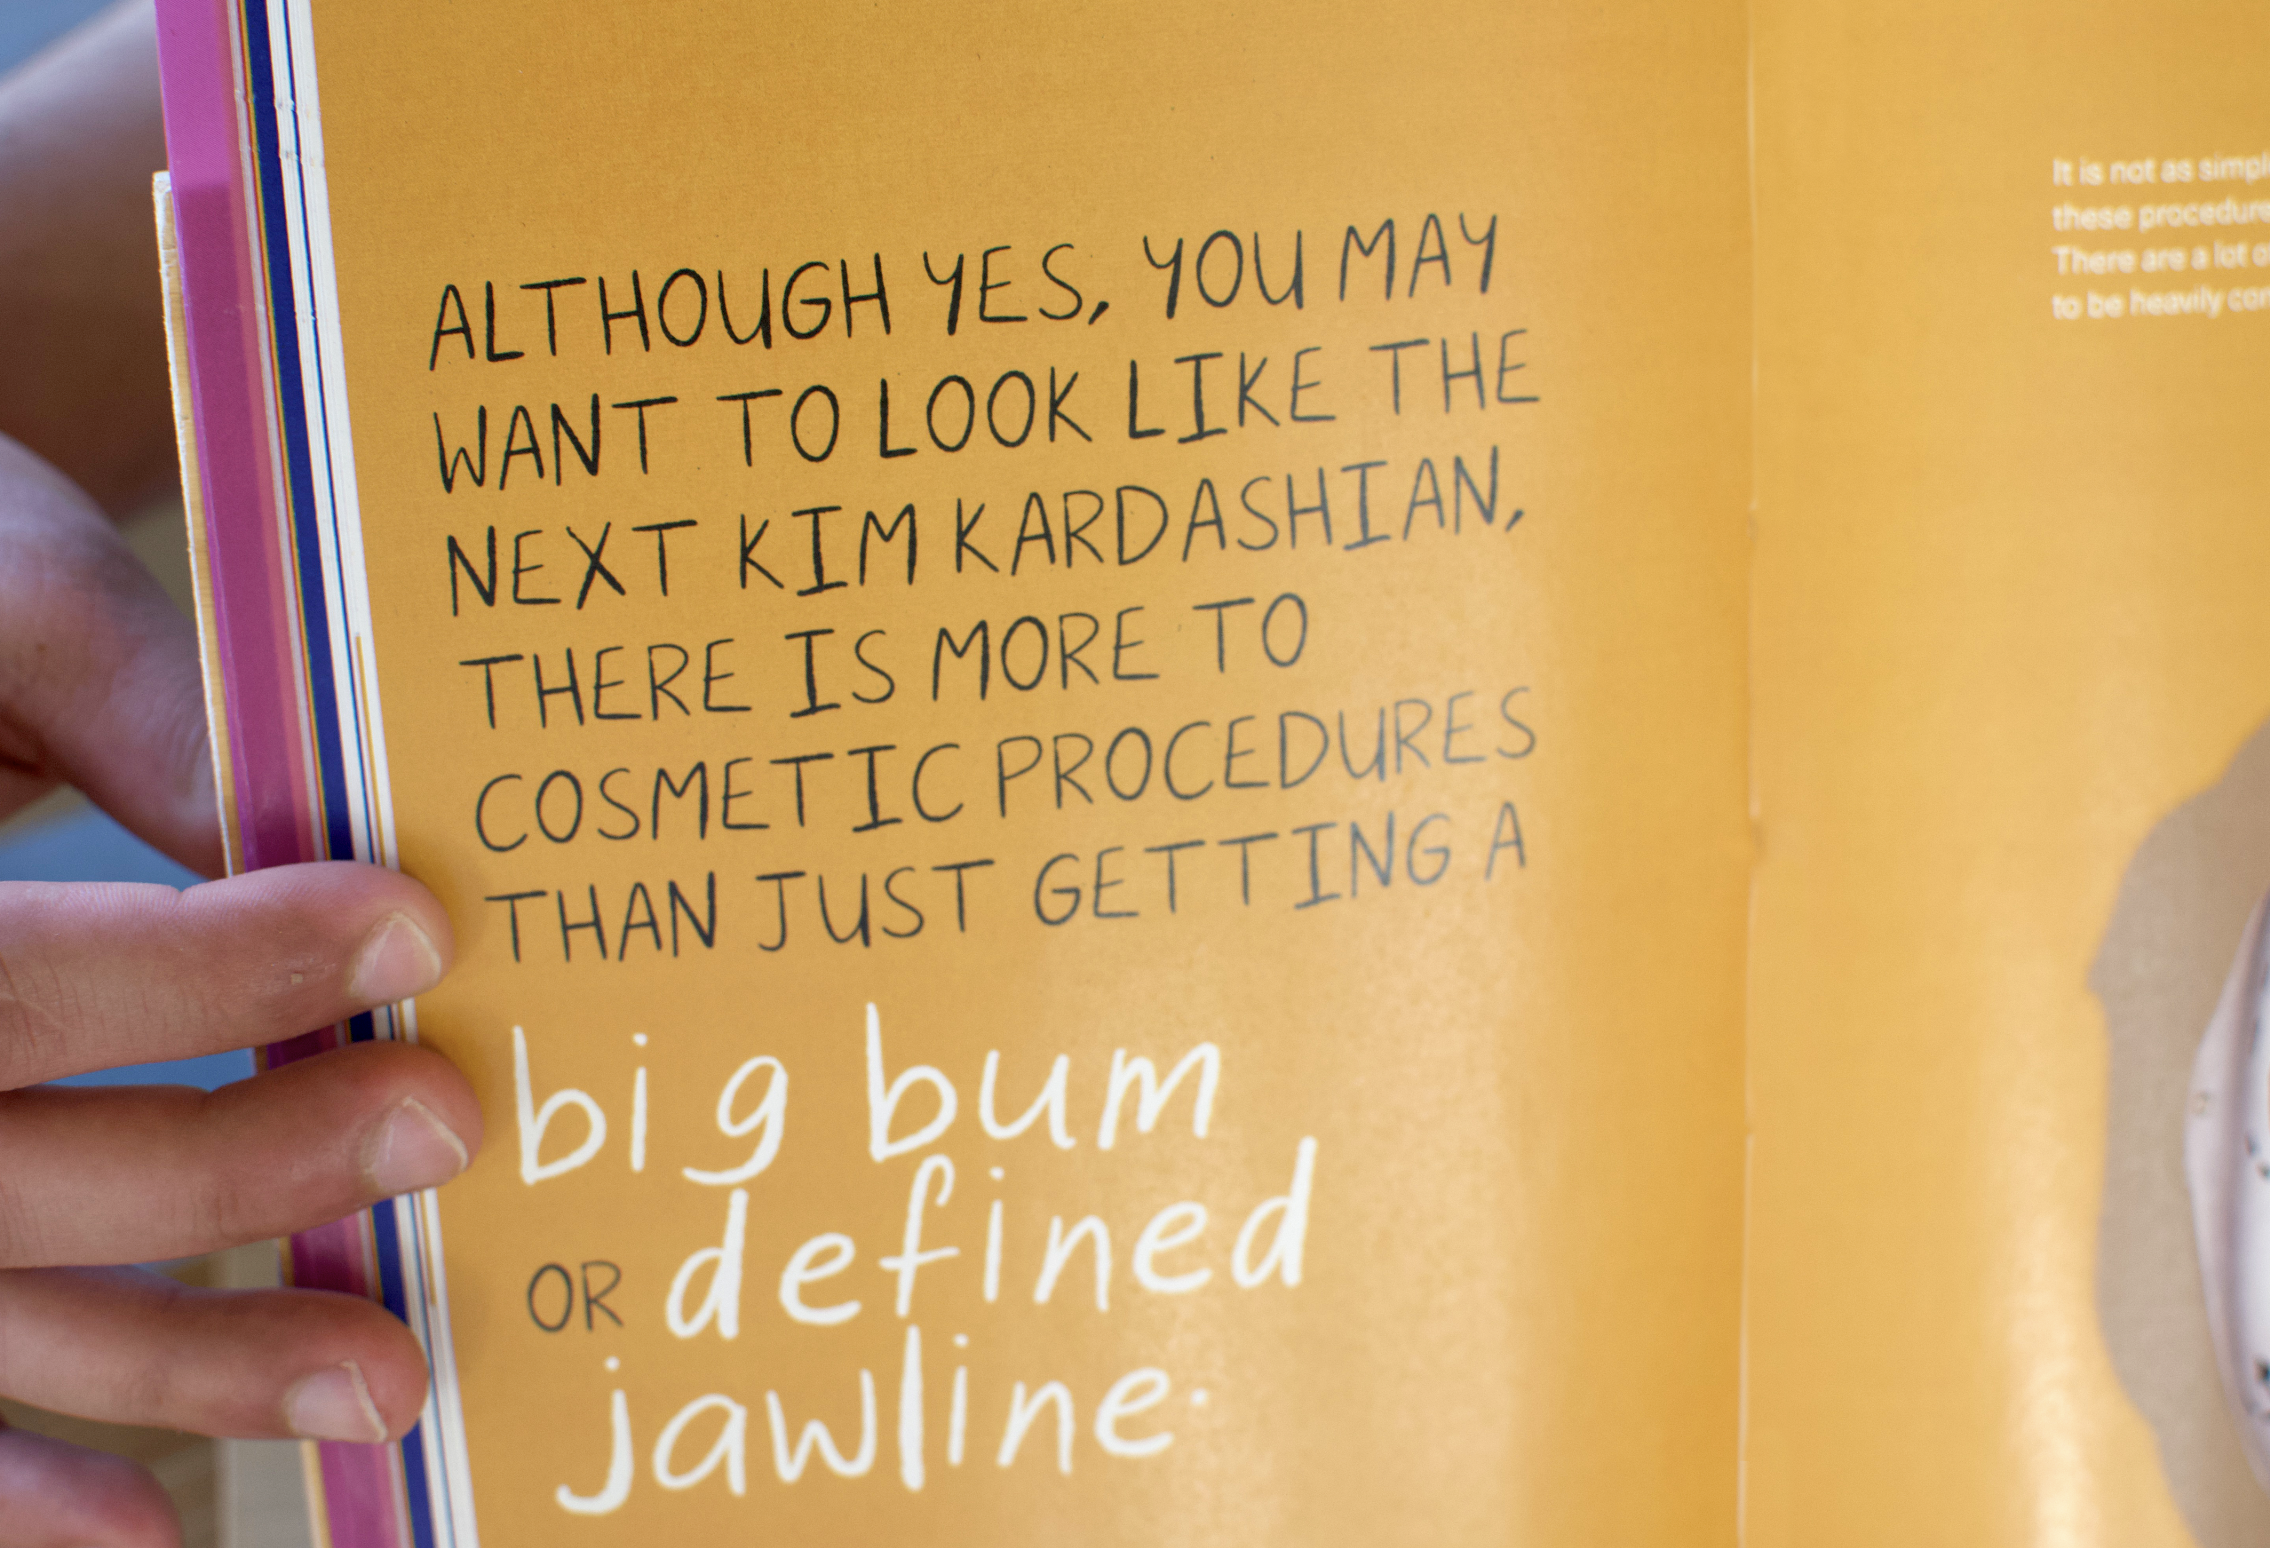 ALTHOUGH YES, YOU MAY
WANT TO LOOK LIKE THE
NEXT KIM KARDASHIAN,
THERE IS MORE TO
COSMETIC PROCEDURES
THAN JUST GETTING A
big bum
OR defined
jawline.
It is not as simpl
these procedure
There are a lot o
to be heavily con